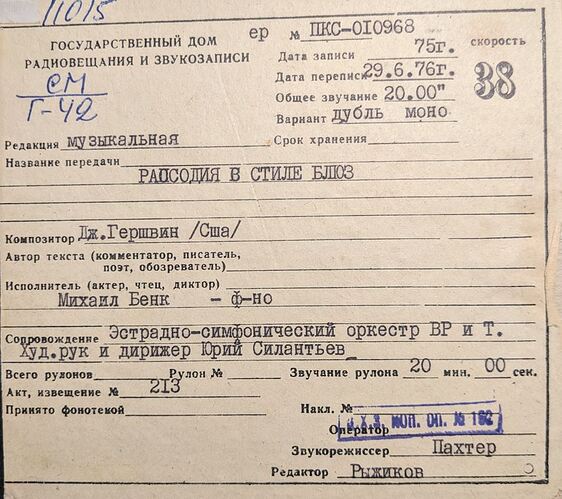 11015
ГОСУДАРСТВЕННЫЙ ДОМ
РАДИОВЕЩАНИЯ И ЗВУКОЗАПИСИ
СМ
Т-42
ер № ПКС-010968
Дата записи 75г.
Дата переписи 29.6.76г.
Общее звучание 20.00"
Вариант дубль моно
скорость
38
Редакция музыкальная Срок хранения
Название передачи
РАПСОДИЯ В СТИЛЕ БЛЮЗ
Композитор Дж.Гершвин /Сша/
Автор текста (комментатор, писатель,
поэт, обозреватель)
Исполнитель (актер, чтец, диктор)
Михаил Бенк - ф-но
Сопровождение Эстрадно-симфонический оркестр ВР и Т.
Худ.рук и дирижер Юрий Силантьев
Всего рулонов Рулон № Звучание рулона 20 мин. 00 сек.
Акт, извещение № 213
Принято фонотекой Накл. №
МОП. ОП. № 192
Оператор
Звукорежиссер Пахтер
Редактор Рыжиков